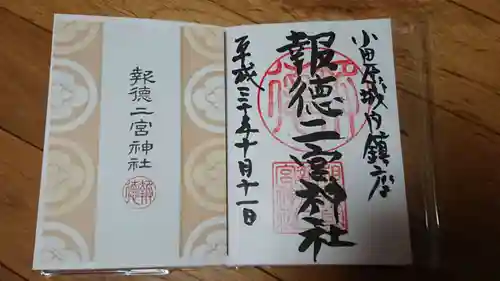 小田原城内鎮座
報徳二宮神社
平成三十年十月十一日
報徳二宮神社
報徳